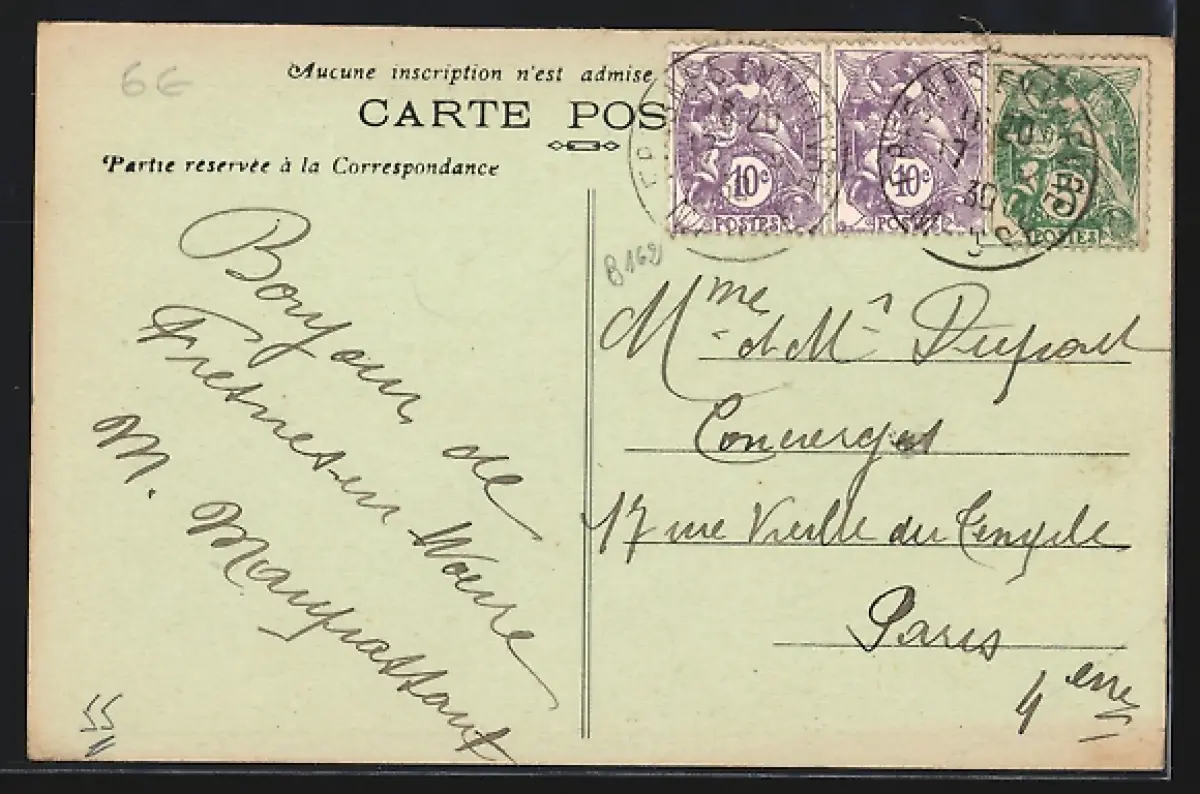 6€
Aucune inscription n'est admise
CARTE POS
Partie reservée à la Correspondance
10c
POSTES
10c
POSTES
POSTES
B169
Bonjour de
Fresnes en Woevre
M. Maupassant
Mme et Mr Dupont
Concierges
17 rue Vieille du Temple
Paris
4 eme